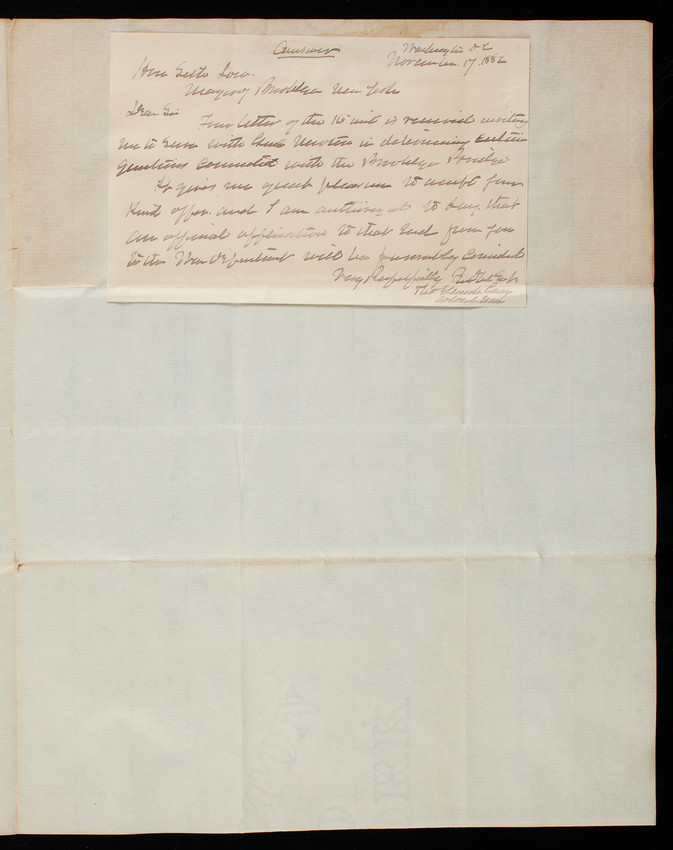 Answer
Washington DC
November 17, 1882
Hon Seth Low
Mayor of Brooklyn New York
Dear Sir
Your letter of the 16 inst is received inviting
me to serve with Genl Newton in determining certain
questions connected with the Brooklyn Bridge
It gives me great pleasure to accept your
kind offer and I am authorized to say that
an official application to that end from you
to the War Department will be favorably considered
Very Respectfully Your Obt Servt
Thos Lincoln Casey